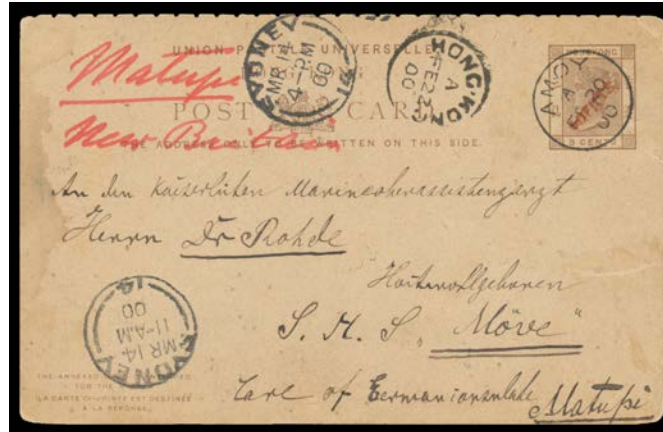 UNION POSTALE UNIVERSELLE
HONG KONG
POST CARD
THE ADDRESS ONLY TO BE WRITTEN ON THIS SIDE.
Matupi
New Britain
SYDNEY
MR 14
4-PM
00
14
HONG KONG
A
FE 22
00
AMOY
A
FE 20
00
3 CENTS
An den Kaiserlichen Marineoberassistenzarzt
Herrn Dr Rohde
Hochwohlgeboren
S. M. S. „Möve"
Care of Germanconsulate
Matupi
SYDNEY
MR 14
11-A.M
00
14
THE ANNEXED
FOR THE
LA CARTE CI-JOINTE EST DESTINÉE
À LA RÉPONSE.